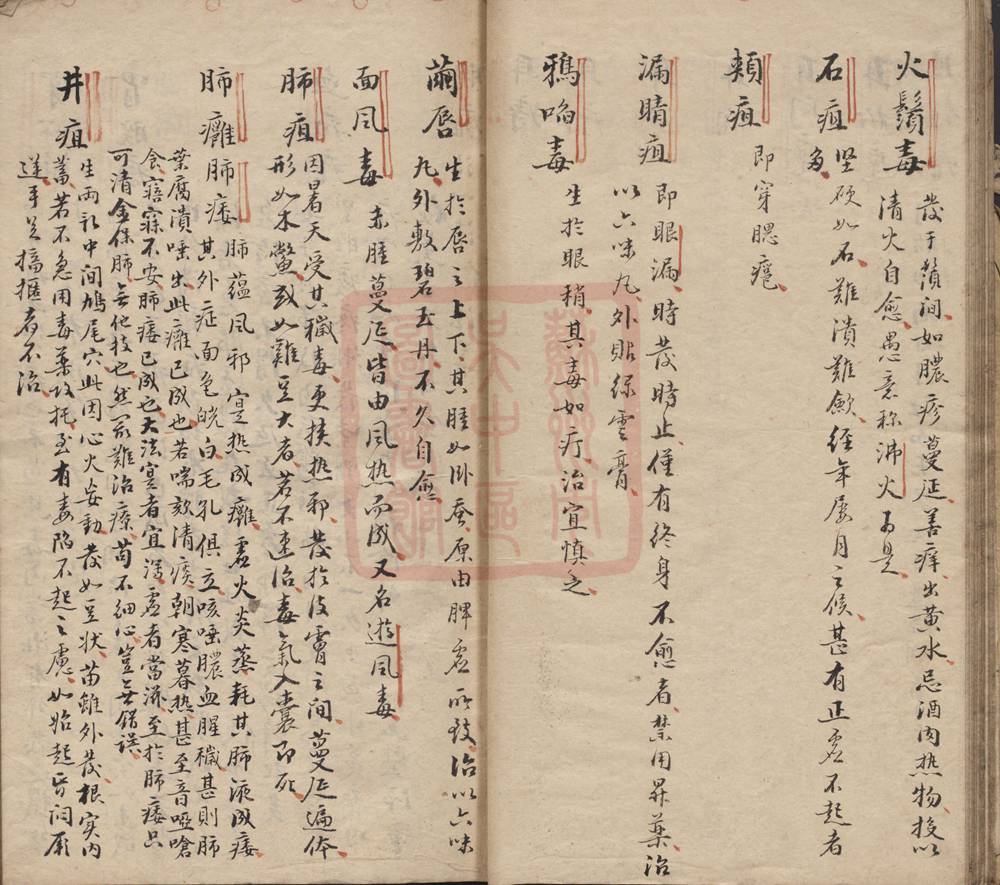 火鬚毒 發于鬚间如膿疹蔓延善痒出黄水忌酒肉热物投以
清火自愈愚意称沸火者是
石疽 坚硬如石难溃难歛经年屡月之候甚有正虚不起者
多
頬疽
即穿腮瘡
漏睛疽 即眼漏時發時止僅有终身不愈者禁用昇薬治
以六味丸外貼绿雲膏
鴉啗毒 生於眼稍其毒如疔治宜慎之
繭唇 生於唇之上下其腫如卧蚕原由脾虚所致治以六味
丸外敷碧玉丹不久自愈
面风毒 赤腫蔓延皆由风热而成又名遊风毒
肺疽 因暑天受其穢毒更挟热邪發於皮膚之间蔓延遍体
形如木鱉或如雞豆大者若不速治毒氣入囊即死
肺癰肺痿 肺蕴风邪寔热成癰虚火炎蒸耗其肺液成痿
其外症面色㿠白毛孔俱立咳唾膿血腥穢甚則肺
葉腐溃唾出此癰已成也若喘欬清痰朝寒暮热甚至音啞嗆
食寤寐不安肺痿已成也大法寔者宜瀉虚者當滋至於肺痿只
可清金保肺无他技也然最难治療苟不细心豈无错误
井疽 生两乳中间鸠尾穴此因心火妄動發如豆状苗雖外發根实内
蓄若不急用毒薬攻托至有毒陷不起之慮如始起昏闷厥
逆手足搐搦者不治